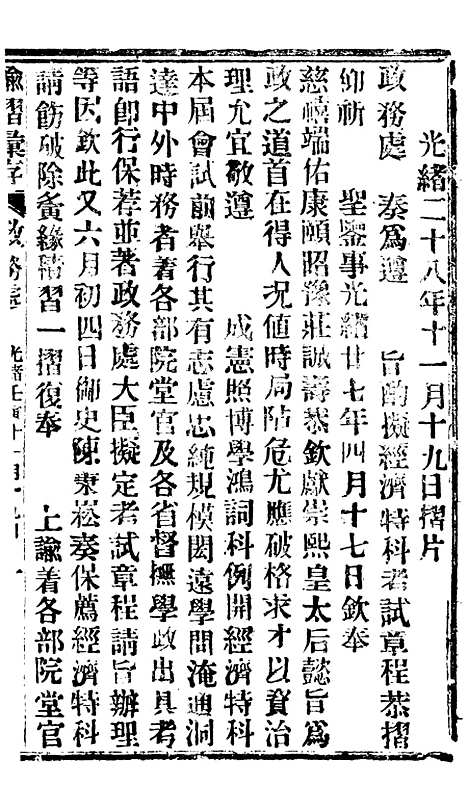 光緒二十八年十一月十九日摺片
政務處　奏爲遵　旨酌擬經濟特科考試章程恭摺
仰祈　聖鑒事光緒廿七年四月十七日欽奉
慈禧端佑康頤昭豫莊誠壽恭欽獻崇熙皇太后懿旨爲
政之道首在得人況值時局阽危尤應破格求才以資治
理允宜敬遵　成憲照博學鴻詞科例開經濟特科
本屆會試前舉行其有志慮忠純規模閎遠學問淹通洞
達中外時務者着各部院堂官及各省督撫學政出具考
語卽行保荐並著政務處大臣擬定考試章程請旨辦理
等因欽此又六月初四日御史陳秉崧奏保薦經濟特科
請飭破除夤緣積習一摺復奉　上諭着各部院堂官
諭摺彙存　政務處　光緒壬寅十一月十九日　一